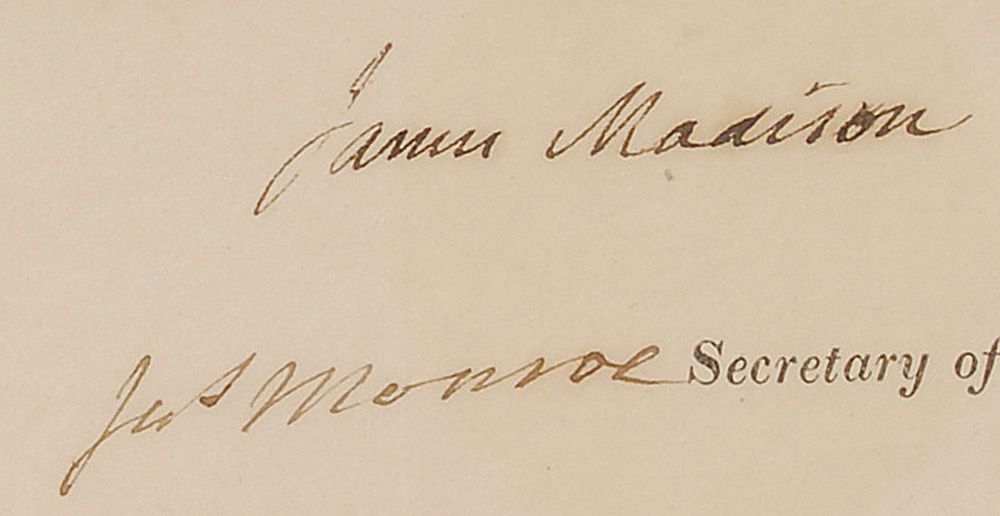 James Madison
Jas Monroe Secretary of